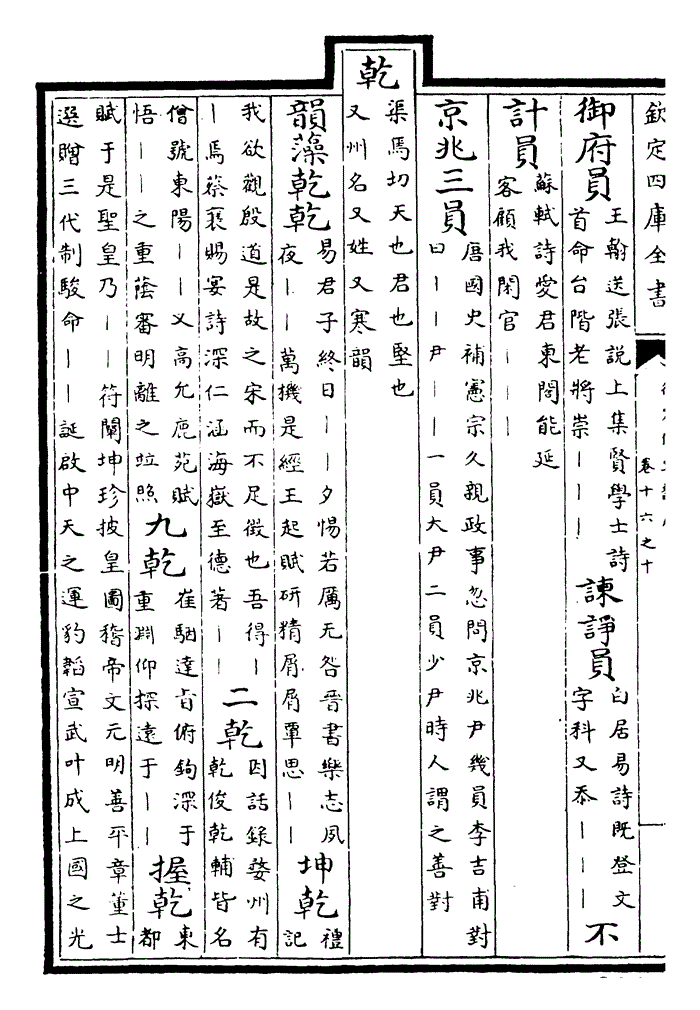 欽定四庫全書
卷十六之十
御府員
王翰送張說上集賢學士詩
首命台階老將崇丨丨丨
諫諍員
白居易詩既登文
字科又忝丨丨丨
不
計員
蘇軾詩愛君東閣能延
客顧我閑官丨丨丨
京兆三員
唐國史補憲宗久親政事忽問京兆尹幾員李吉甫對
曰丨丨尹丨丨一員大尹二員少尹時人謂之善對
乾
渠焉切天也君也堅也
又州名又姓又寒韻
韻藻乾乾
易君子終日丨丨夕惕若厲无咎晉書樂志夙
夜丨丨萬機是經王起賦研精屑屑覃思丨丨
坤乾
禮
記
我欲觀殷道是故之宋而不足徵也吾得丨
丨焉蔡襄賜宴詩深仁涵海嶽至德著丨丨
二乾
因話錄婺州有
乾俊乾輔皆名
僧號東陽丨丨又高允鹿苑賦
悟丨丨之重蔭審明離之竝照
九乾
崔駰達旨俯鉤深于
重淵仰探遠于丨丨
握乾
東
都
賦于是聖皇乃丨丨符闡坤珍披皇圖稽帝文元明善平章董士
選贈三代制駿命丨丨誕啟中天之運豹韜宣武叶成上國之光